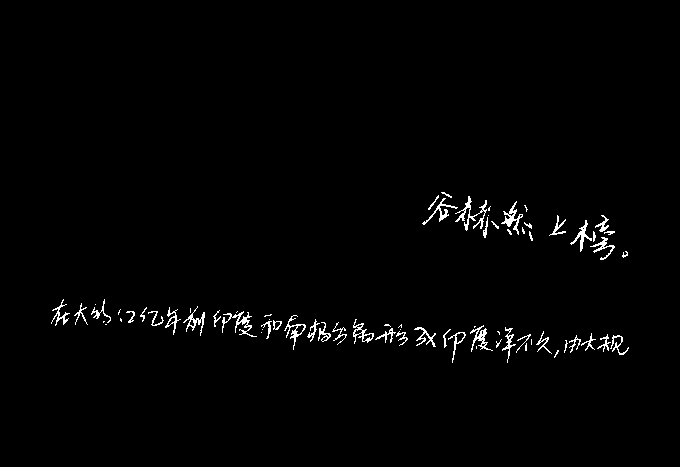 谷赫然上榜。
在大约1.2亿年前印度和南极分离形成印度洋不久,由大规